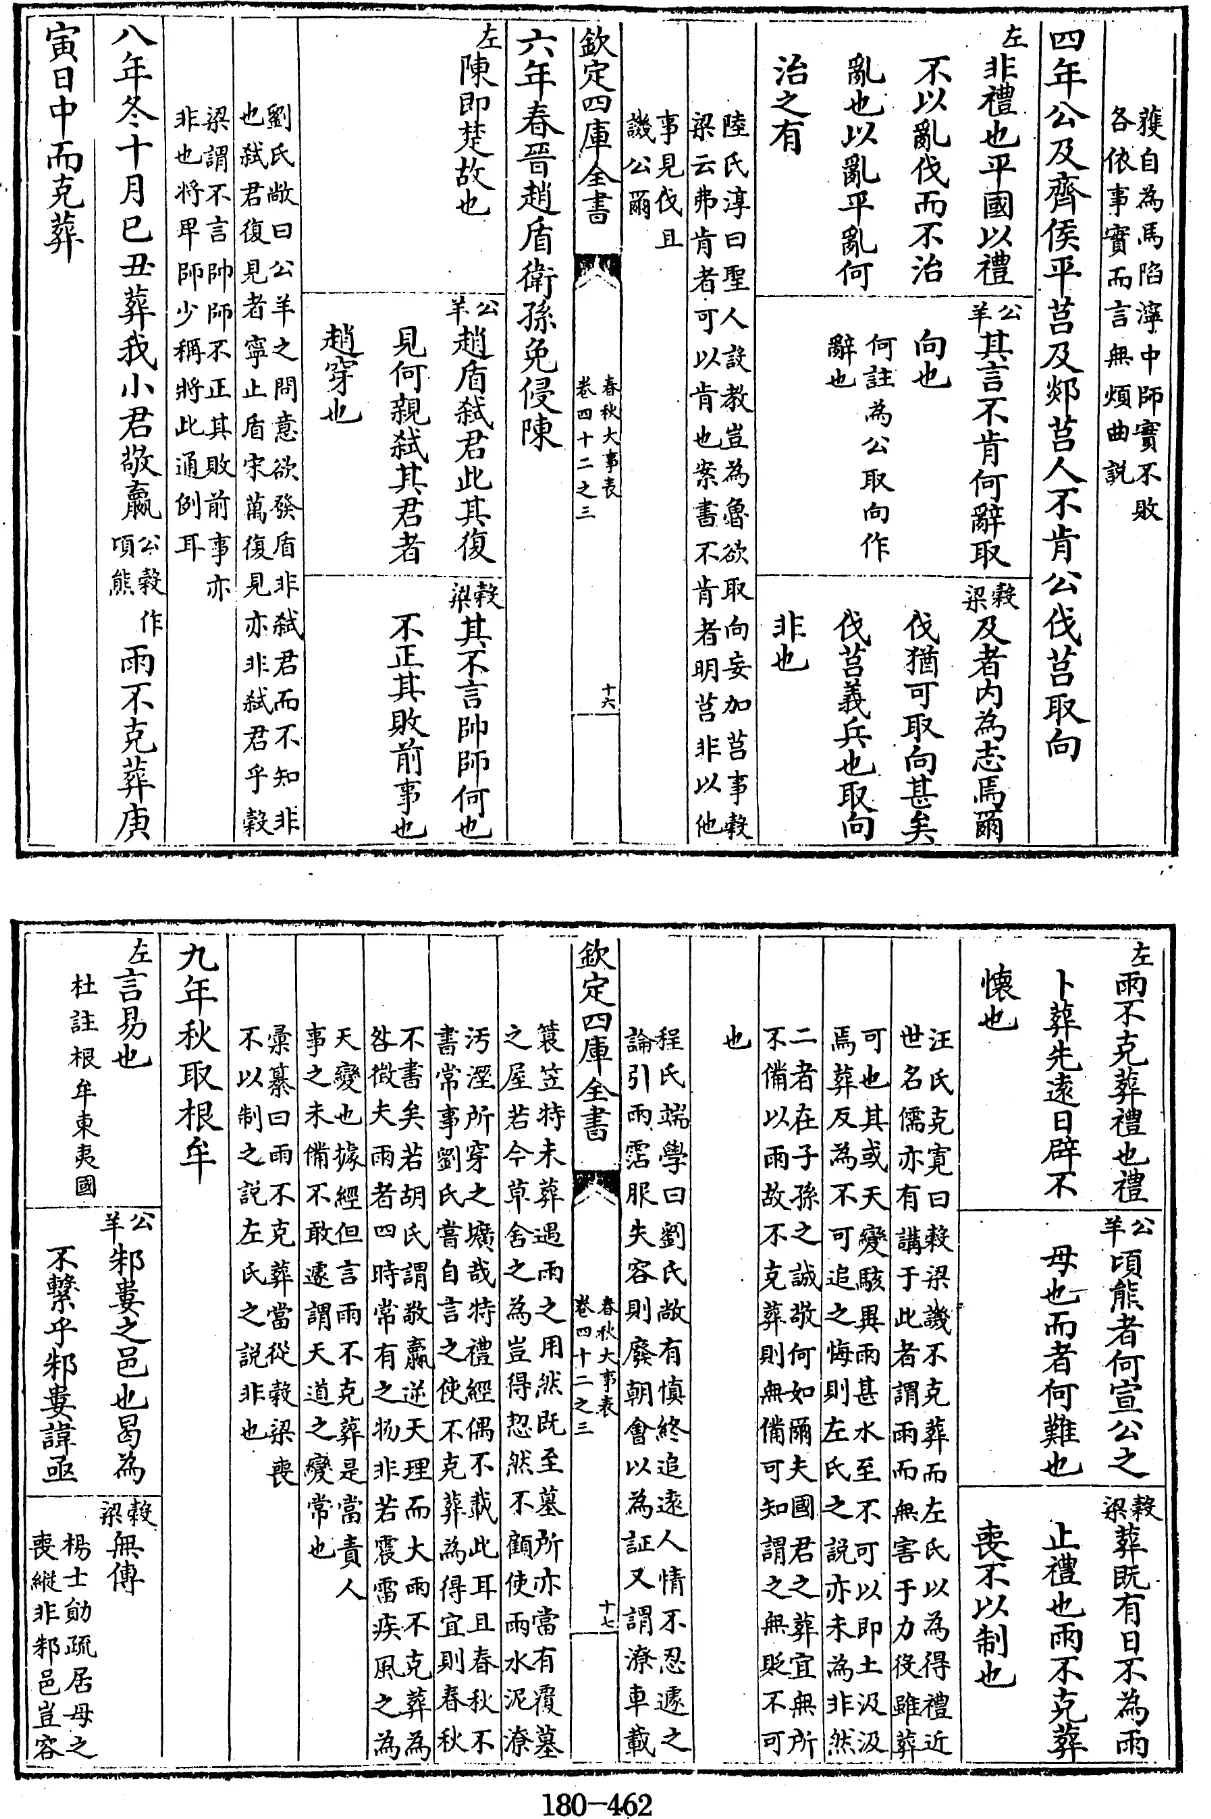 獲自為馬陷濘中師實不敗
各依事實而言無煩曲説
四年公及齊侯平莒及郯莒人不肯公伐莒取向
左
非禮也平國以禮
不以亂伐而不治
亂也以亂平亂何
治之有
公羊
其言不肯何辭取
向也
何註為公取向作
辭也
穀梁
及者内為志焉爾
伐猶可取向甚矣
伐莒義兵也取向
非也
陸氏淳曰聖人設教豈為魯欲取向妄加莒事穀
梁云弗肯者可以肯也案書不肯者明莒非以他
事見伐且
譏公爾
欽定四庫全書
春秋大事表
卷四十二之三
十六
六年春晉趙盾衛孫免侵陳
左
陳即楚故也
公羊
趙盾弑君此其復
見何親弑其君者
趙穿也
穀梁
其不言帥師何也
不正其敗前事也
劉氏敞曰公羊之問意欲發盾非弑君而不知非
也弑君復見者寧止盾宋萬復見亦非弑君乎穀
梁謂不言帥師不正其敗前事亦
非也將卑師少稱將此通例耳
八年冬十月己丑葬我小君敬嬴
公穀作
頃熊
雨不克葬庚
寅日中而克葬
左
雨不克葬禮也禮
卜葬先遠日辟不
懷也
公羊
頃熊者何宣公之
母也而者何難也
穀梁
葬既有日不為雨
止禮也雨不克葬
喪不以制也
汪氏克寛曰穀梁譏不克葬而左氏以為得禮近
世名儒亦有講于此者謂雨而無害于力役雖葬
可也其或天變駭異雨甚水至不可以即土汲汲
焉葬反為不可追之悔則左氏之説亦未為非然
二者在子孫之誠敬何如爾夫國君之葬宜無所
不備以雨故不克葬則無備可知謂之無貶不可
也
程氏端學曰劉氏敞有慎終追逺人情不忍遽之
論引雨霑服失容則廢朝會以為証又謂潦車載
欽定四庫全書
春秋大事表
卷四十二之三
十七
蓑笠特未葬遇雨之用然既至墓所亦當有覆墓
之屋若今草舍之為豈得恝然不顧使雨水泥潦
汚溼所穿之壙哉特禮經偶不載此耳且春秋不
書常事劉氏嘗自言之使不克葬為得宜則春秋
不書矣若胡氏謂敬嬴逆天理而大雨不克葬為
咎徵夫雨者四時常有之物非若震雷疾風之為
天變也據經但言雨不克葬是當責人
事之未備不敢遽謂天道之變常也
彙纂曰雨不克葬當從穀梁喪
不以制之説左氏之説非也
九年秋取根牟
左
言易也
杜註根牟東夷國
公羊
邾婁之邑也曷為
不繫乎邾婁諱亟
穀梁
無傳
楊士勛疏居母之
喪縱非邾邑豈容
180-462